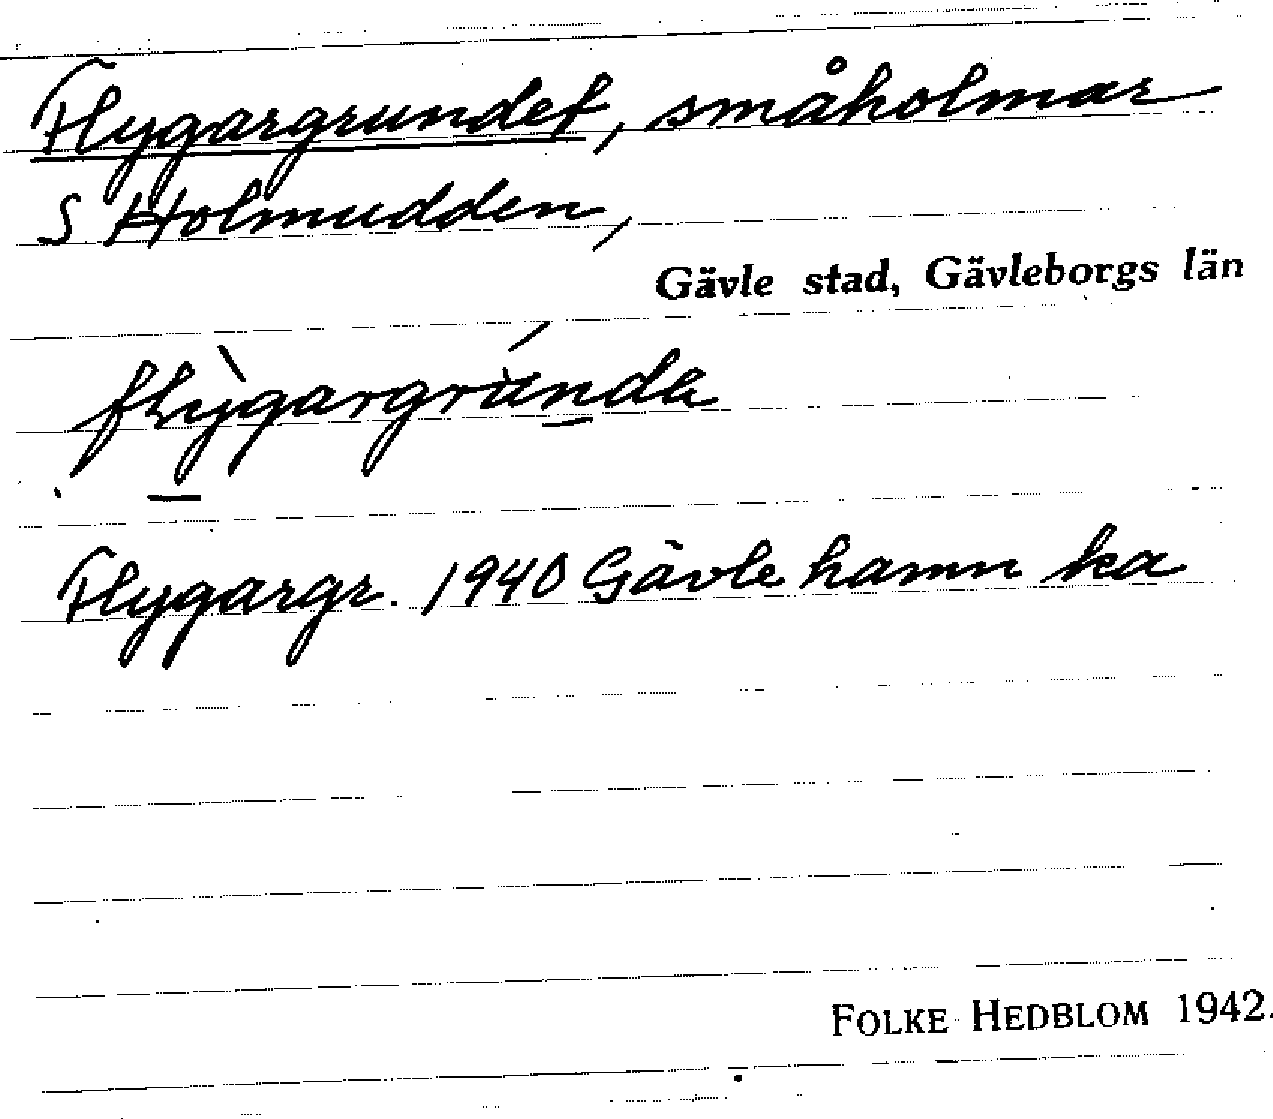 Flygargrundet, småholmar
S Holmudden,
Gävle stad, Gävleborgs län
flỳgargrúnda
Flygargr. 1940 Gävle hamn ka
FOLKE HEDBLOM 1942.